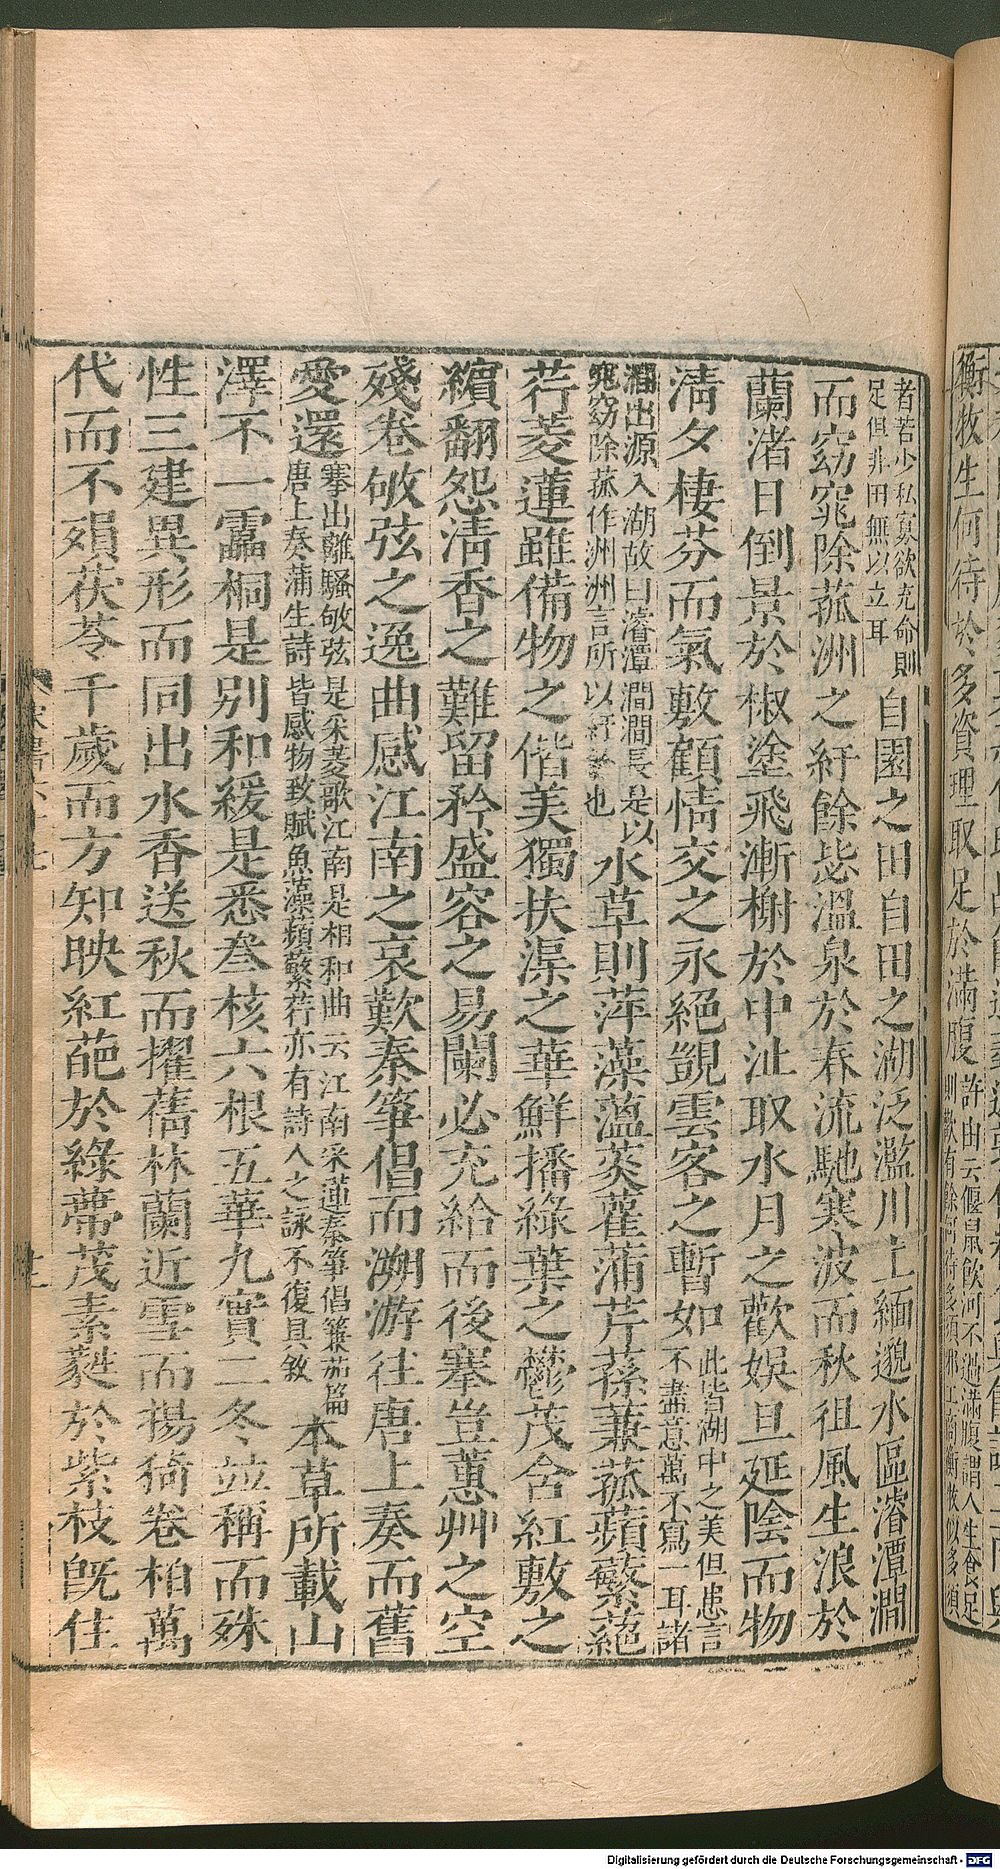 衡牧生何待於多資理取足於滿腹
許由云偃鼠飲河不過滿腹謂人生食足
則歡有餘何待多須邪工商衡牧似多須
者若少私寡欲充命則
足但非田無以立耳
自園之田自田之湖泛濫川上緬邈水區濬潭澗
而窈窕除菰洲之紆餘毖溫泉於春流馳寒波而秋徂風生浪於
蘭渚日倒景於椒塗飛漸榭於中沚取水月之歡娛旦延陰而物
清夕棲芬而氣敷顧情交之永絕覬雲客之暫如
此皆湖中之美但患言
不盡意萬不寫一耳諸
澗出源入湖故曰濬潭澗澗長是以
窕窈除菰作洲洲言所以紆也
水草則萍藻薀菼雚蒲芹蓀蒹菰蘋蘩蕝
荇菱蓮雖備物之偕美獨扶渠之華鮮播綠葉之鬱茂含紅敷之
繽翻怨清香之難留矜盛容之易闌必充給而後搴豈蕙艸之空
殘卷敂弦之逸曲感江南之哀歎秦箏倡而溯游往唐上奏而舊
愛還
搴出離騷敂弦是采菱歌江南是相和曲云江南采蓮秦箏倡蒹葭篇
唐上奏蒲生詩皆感物致賦魚藻蘋蘩荇亦有詩人之詠不復具敘
本草所載山
澤不一靁桐是别和緩是悉叄核六根五華九實二冬竝稱而殊
性三建異形而同出水香送秋而擢蒨林蘭近雪而揚猗卷柏萬
代而不殞茯苓千歲而方知映紅葩於綠蔕茂素蕤於紫枝旣住
Digitalisierung gefördert durch die Deutsche Forschungsgemeinschaft - DFG